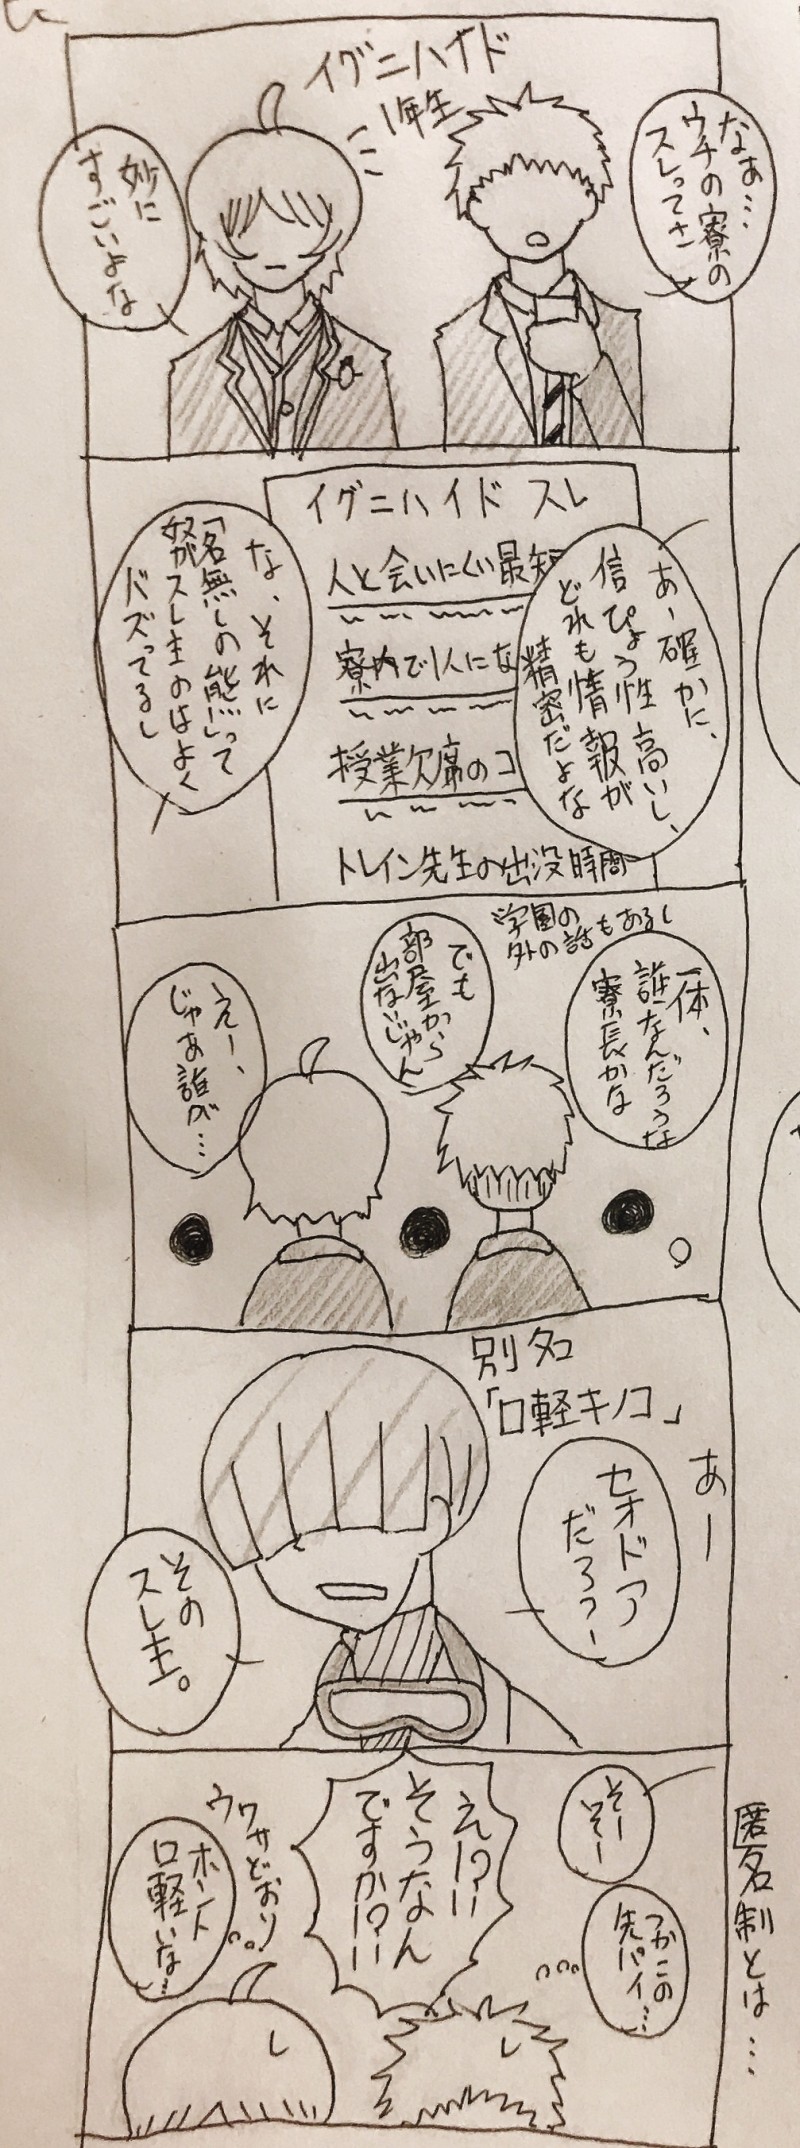 イグニハイド
1年生
なぁ…
ウチの寮の
スレってさ
妙に
すごいよな
イグニハイド スレ
人と会いにくい最短
寮内で1人にな
授業欠席のコ
トレイン先生の出没時間
あー確かに、
信ぴょう性高いし、
どれも情報が
精密だよな
な、それに
「名無しの熊」って
奴がスレ主のはよく
バズってるし
一体、
誰なんだろうな
寮長かな
学園の
外の話もあるし
でも
部屋から
出ないじゃん
えー、
じゃあ誰が…
別名
「口軽キノコ」
あー
セオドア
だろっー
その
スレ主。
そー
そー
え!?
そうなん
ですか!?
つかこの
先パイ…
ウワサどおり
ホント
口軽いな…
匿名制とは…